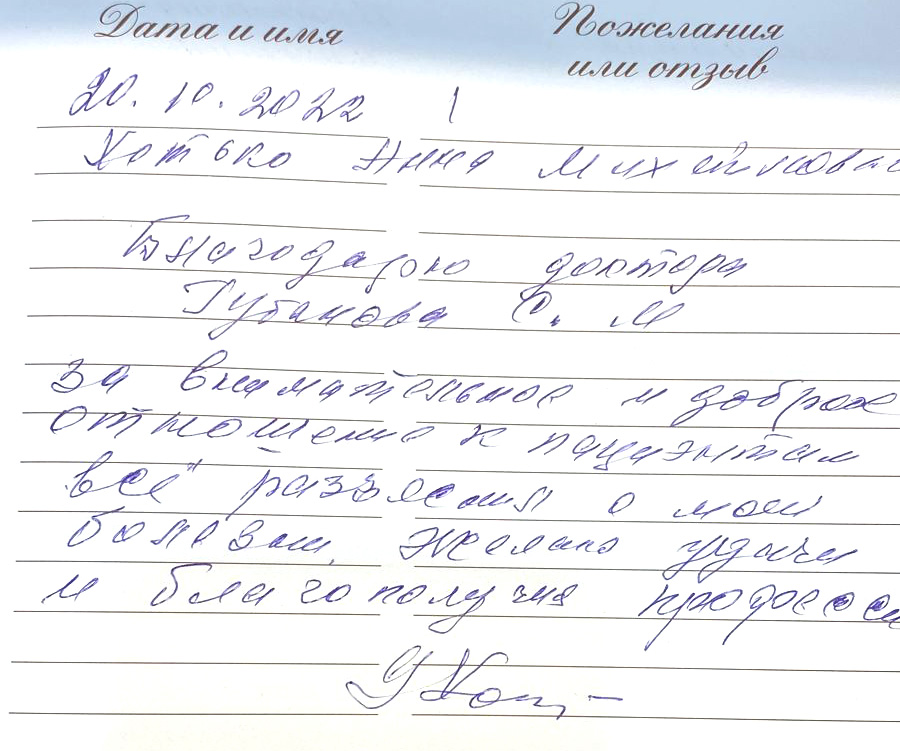 Дата и имя
Пожелания
или отзыв
20.10.2022
Хотько Анна Михейловна
Благодарю доктора
Губанова С. М
за внимательное и доброе
отношение к пациэнтам
всё разъяснил о моей
болезни. Желаю удачи
и благополучия